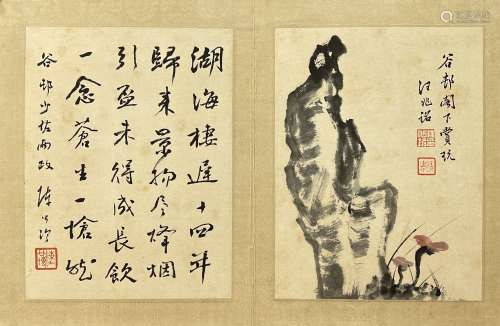 谷邨閣下賞玩
湖海棲遲十四年
歸来景物尽烽烟
引盃未得成長飲
一念蒼生一愴然
谷邨少佐兩政 陳公